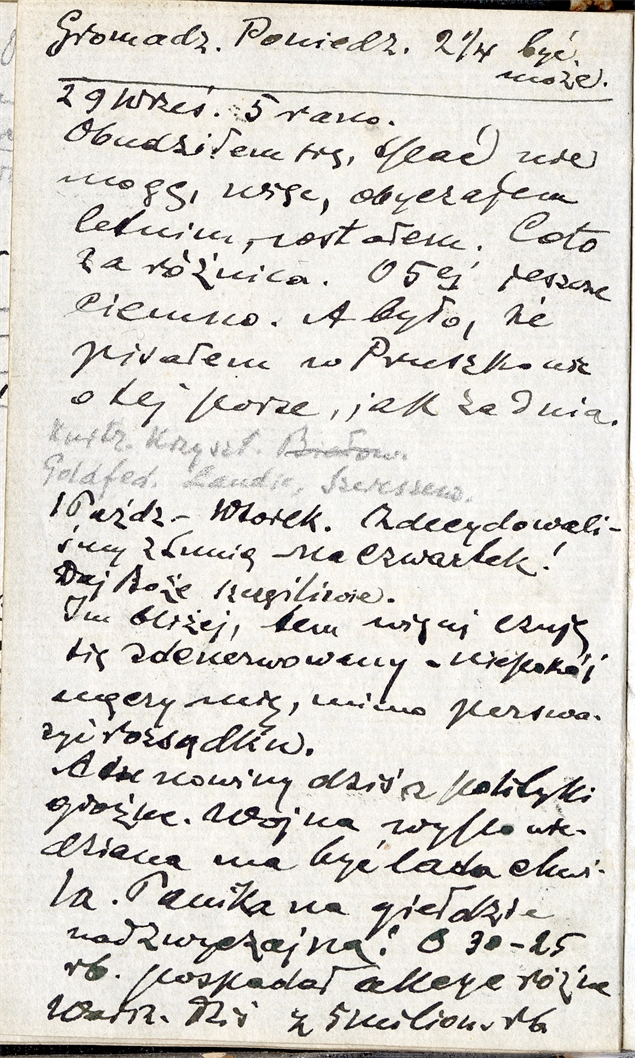 Gromadz. Poniedz. 21/4 być
może.
29 Wrześ. 5 rano.
Obudziłem się, spać nie
mogę, więc, obyczajem
letnim, wstałem. Co to
za różnica. O 5 ej jeszcze
ciemno. A było, że
pisałem w Pruszkowie
o tej porze, jak za dnia.
Krzyszt.
Goldfed. Landie, Szereszew.
1 Paźdz - Wtorek. Zdecydowali-
śmy z Unią na czwartek!
Daj Boże szczęśliwie.
Im bliżej, tem więcej czuję
się zdenerwowany - niepokój
męczy mię, mimo perswa-
zyi rozsądku.
A tu nowiny dziś z polityki
groźne. Wojna wypowie-
dziana ma być lada chwi-
la. Panika na giełdzie
nadzwyczajna! O 30-25
rb. pospadał akcye różne
Warsz. Dziś z 5 milion. rb